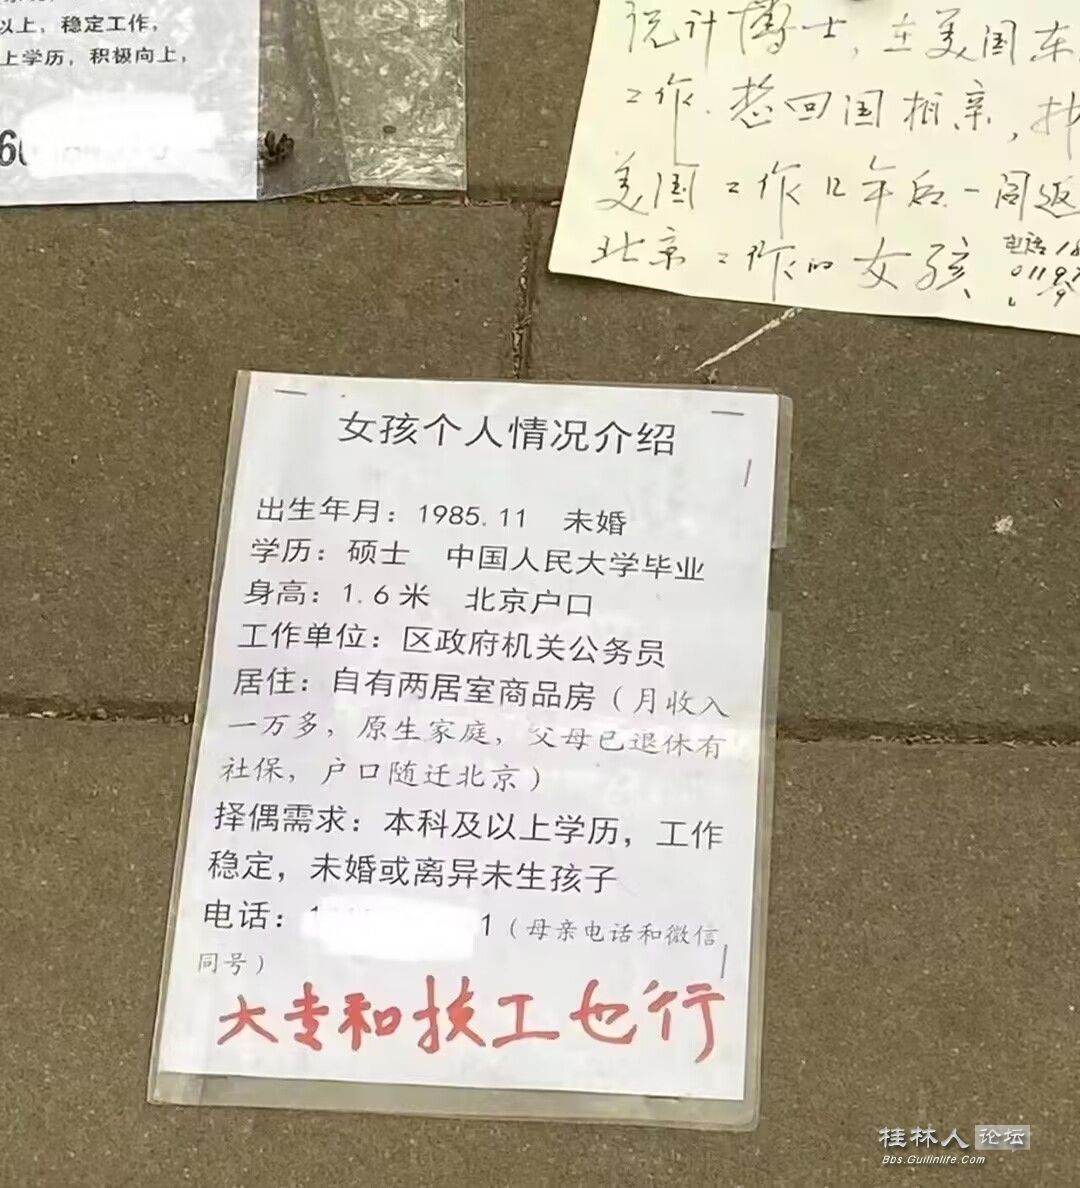 以上，稳定工作，
上学历，积极向上，
统计博士，在美国东
工作．想回国相亲，
美国工作几年后一同返
北京工作的女孩
电话18
01197
女孩个人情况介绍
出生年月：1985.11 未婚
学历：硕士 中国人民大学毕业
身高：1.6米 北京户口
工作单位：区政府机关公务员
居住：自有两居室商品房（月收入
一万多，原生家庭，父母已退休有
社保，户口随迁北京）
择偶需求：本科及以上学历，工作
稳定，未婚或离异未生孩子
电话：1 1（母亲电话和微信
同号）
大专和技工也行
桂林人论坛
Bbs.Guilinlife.Com